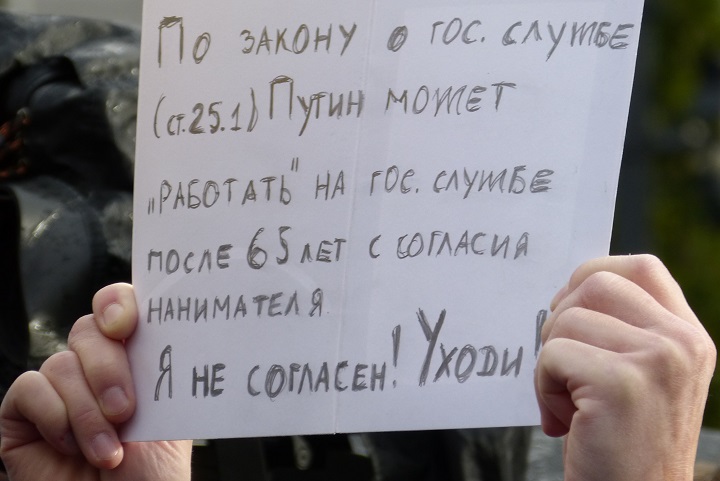 По закону о гос. службе
(ст.25.1) Путин может
„работать" на гос. службе
после 65 лет с согласия
нанимателя
Я не согласен! Уходи!